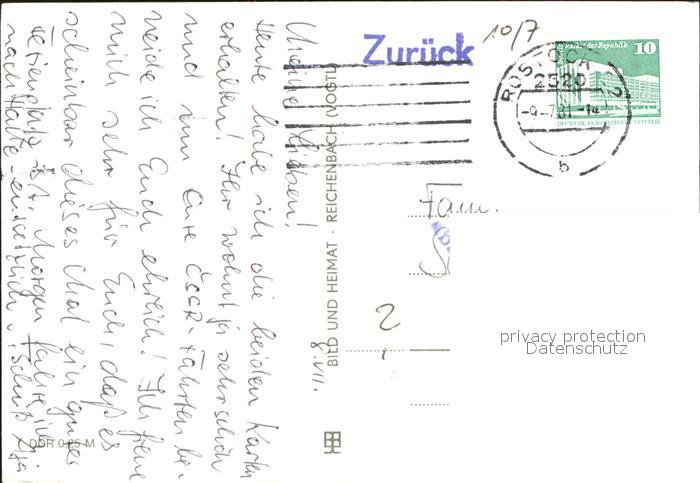 Zurück
10/7
Palast der Republik
10
ROSTOCK
2520
-9.-7.81.-14
b
DEUTSCHE DEMOKRATISCHE REPUBLIK
8.VII.
Meine Lieben!
Heute habe ich die beiden Karten
erhalten! Ihr wohnt ja sehr schön
und um Eure ČSSR-Fahrten be-
neide ich Euch ehrlich! Ich freue
mich sehr für Euch, daß es
scheinbar dieses Mal ein guter
Ferienplatz ist. Morgen fahre ich
nach Halle
BILD UND HEIMAT · REICHENBACH (VOGTL)
Fam.
S
2
DDR 0,25 M
privacy protection
Datenschutz